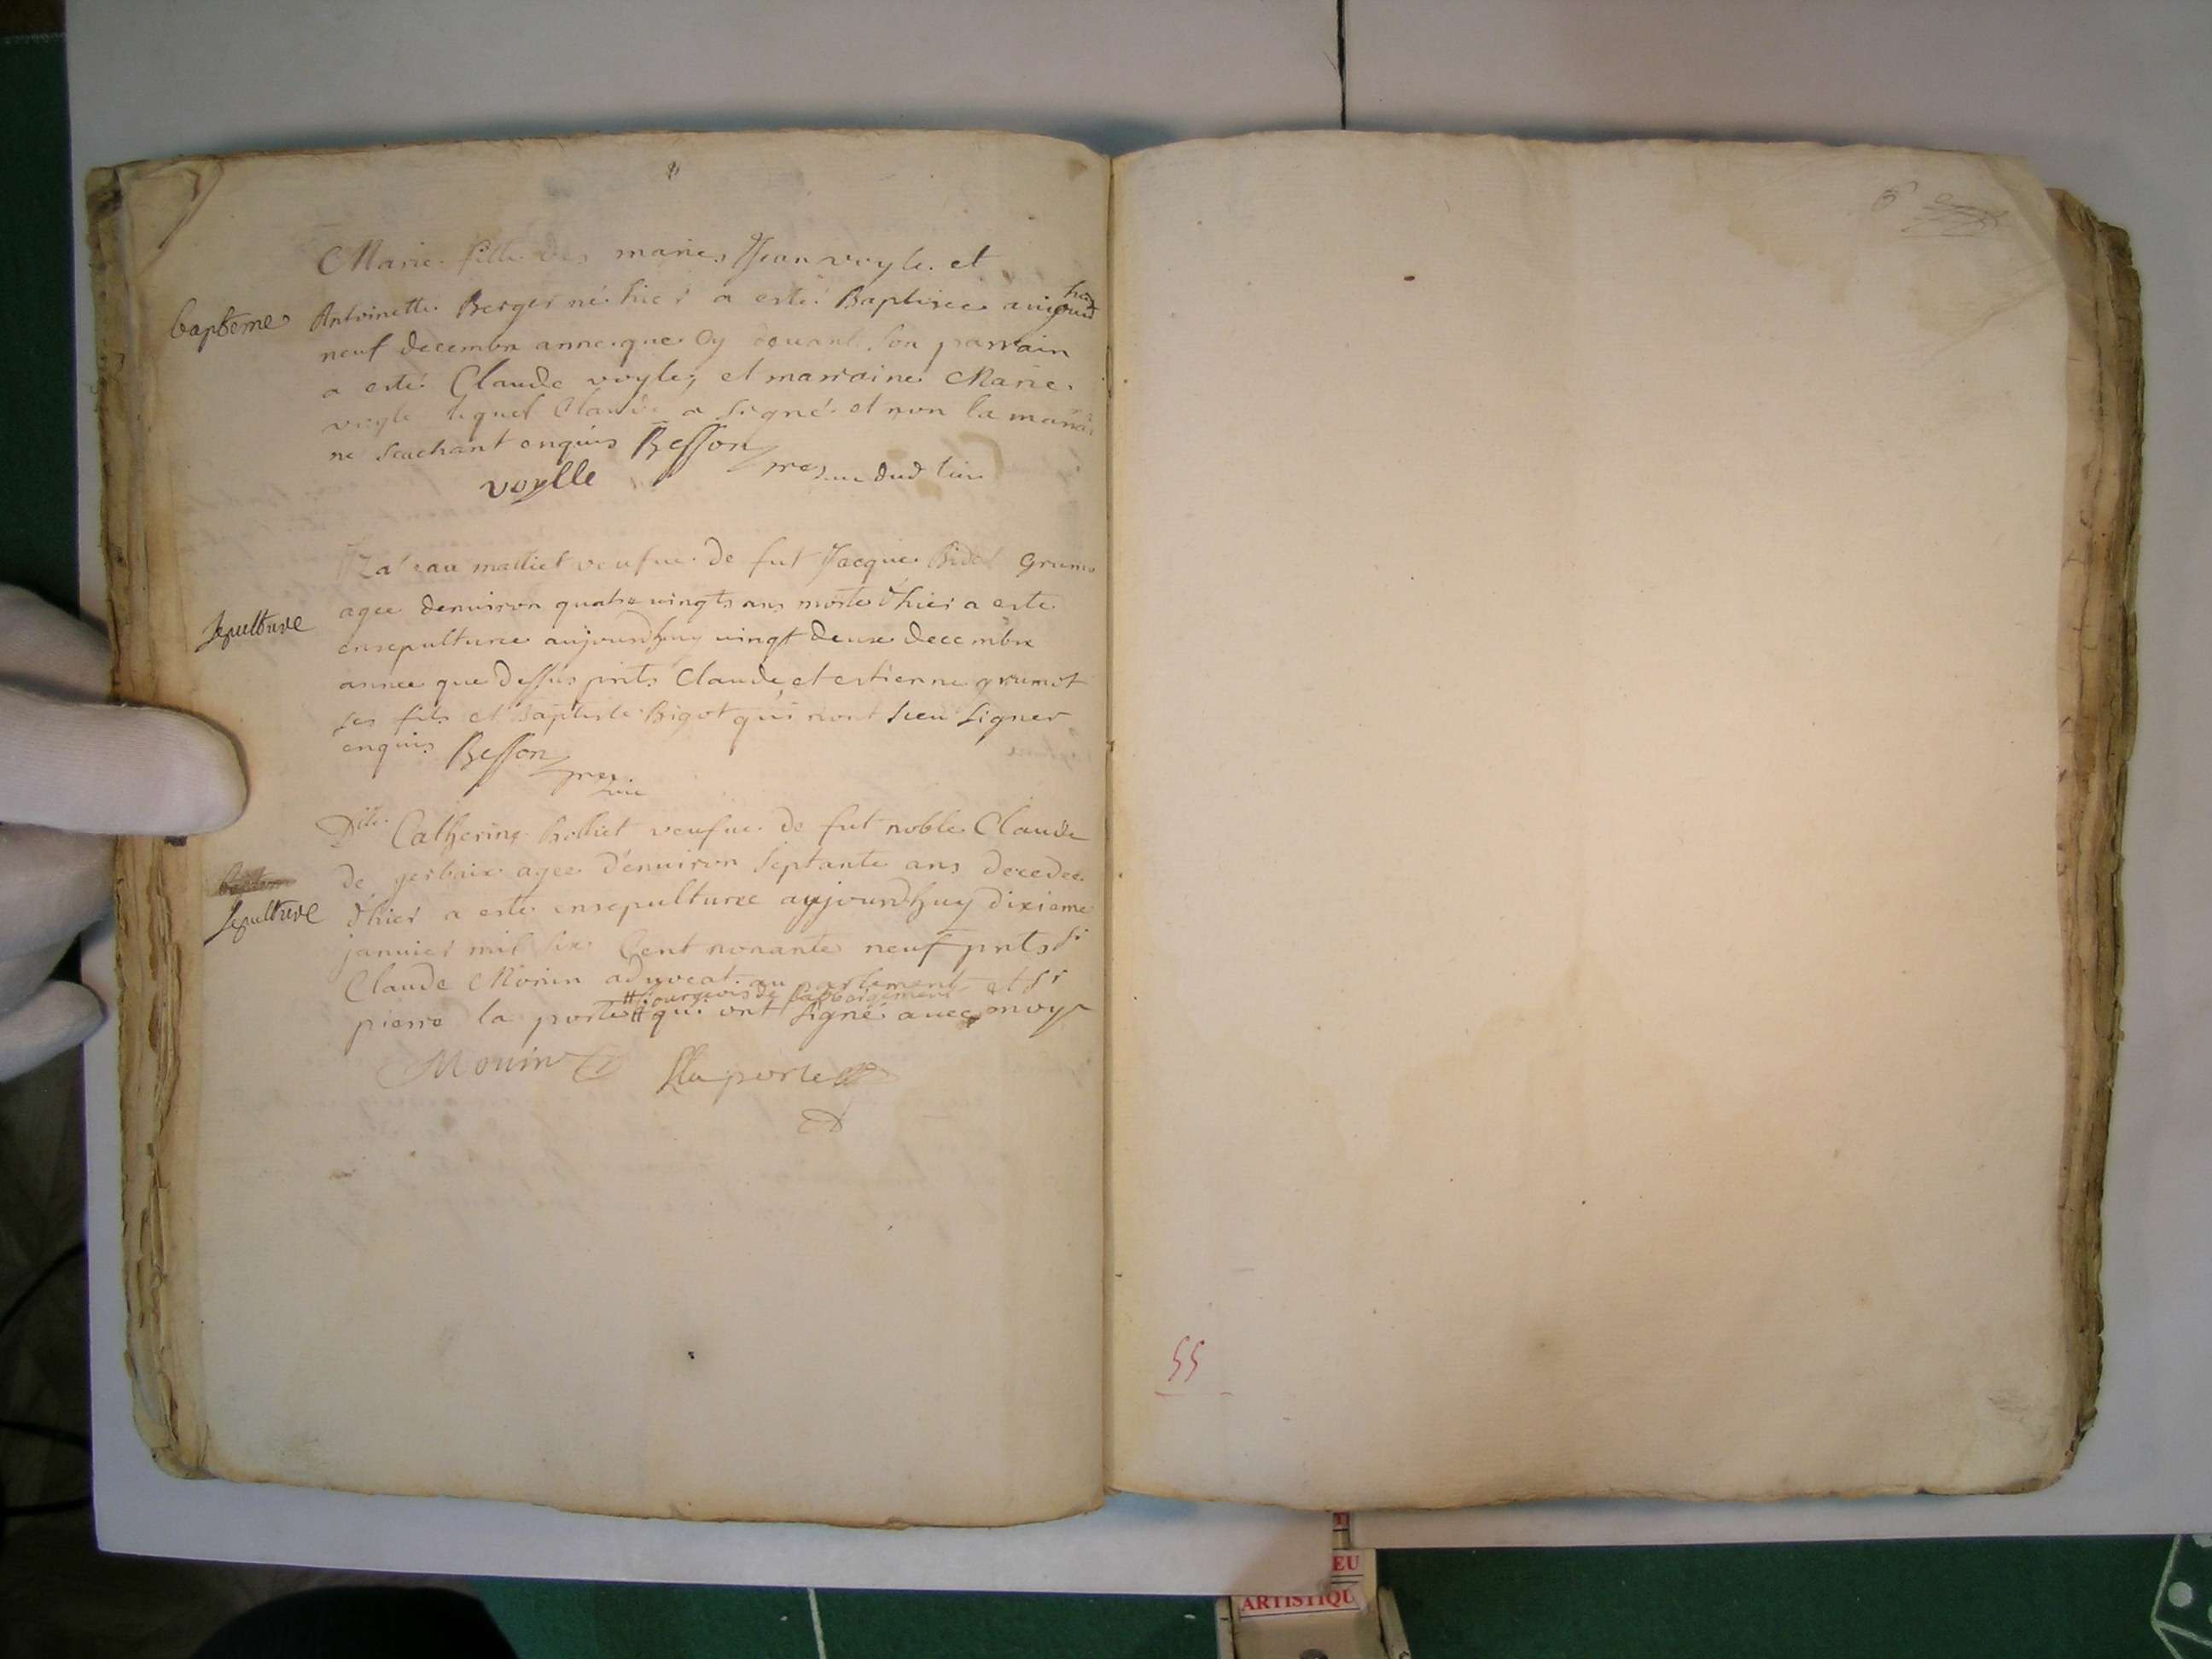 Marie fille des mariés Jean voyle et
bapteme Antoinette Berger né hier a esté Baptisée aujourd huy
neuf decembre anne que Cy douant son parrain
a esté Claude voyle, et marraine Marie
voyle lequel Claude a signé et non la
ne scachant enquis Besson
voylle
malliet veufue de fut Jacque
sepulture agee denuiron quatre uingts ans morte d'hier a este
ensepulturee aujourdhuy uingt deux decembre
annee que dessus pnts Claude, et estienne grumet
ses fils et Baptiste Bigot qui nont sceu signer
enquis Besson
Dlle Catherine veufue de fut noble Claude
de gerbaix agee d'enuiron septante ans decedee
sepulture d'hier a este ensepulturee aujourdhuy dixieme
januier mil six Cent nonante neuf pnts Sr
Claude Monin aduocat au parlement et Sr
# bourgeois de
pierre la porte # qui ont signé auec moy
Monin Laporte
55